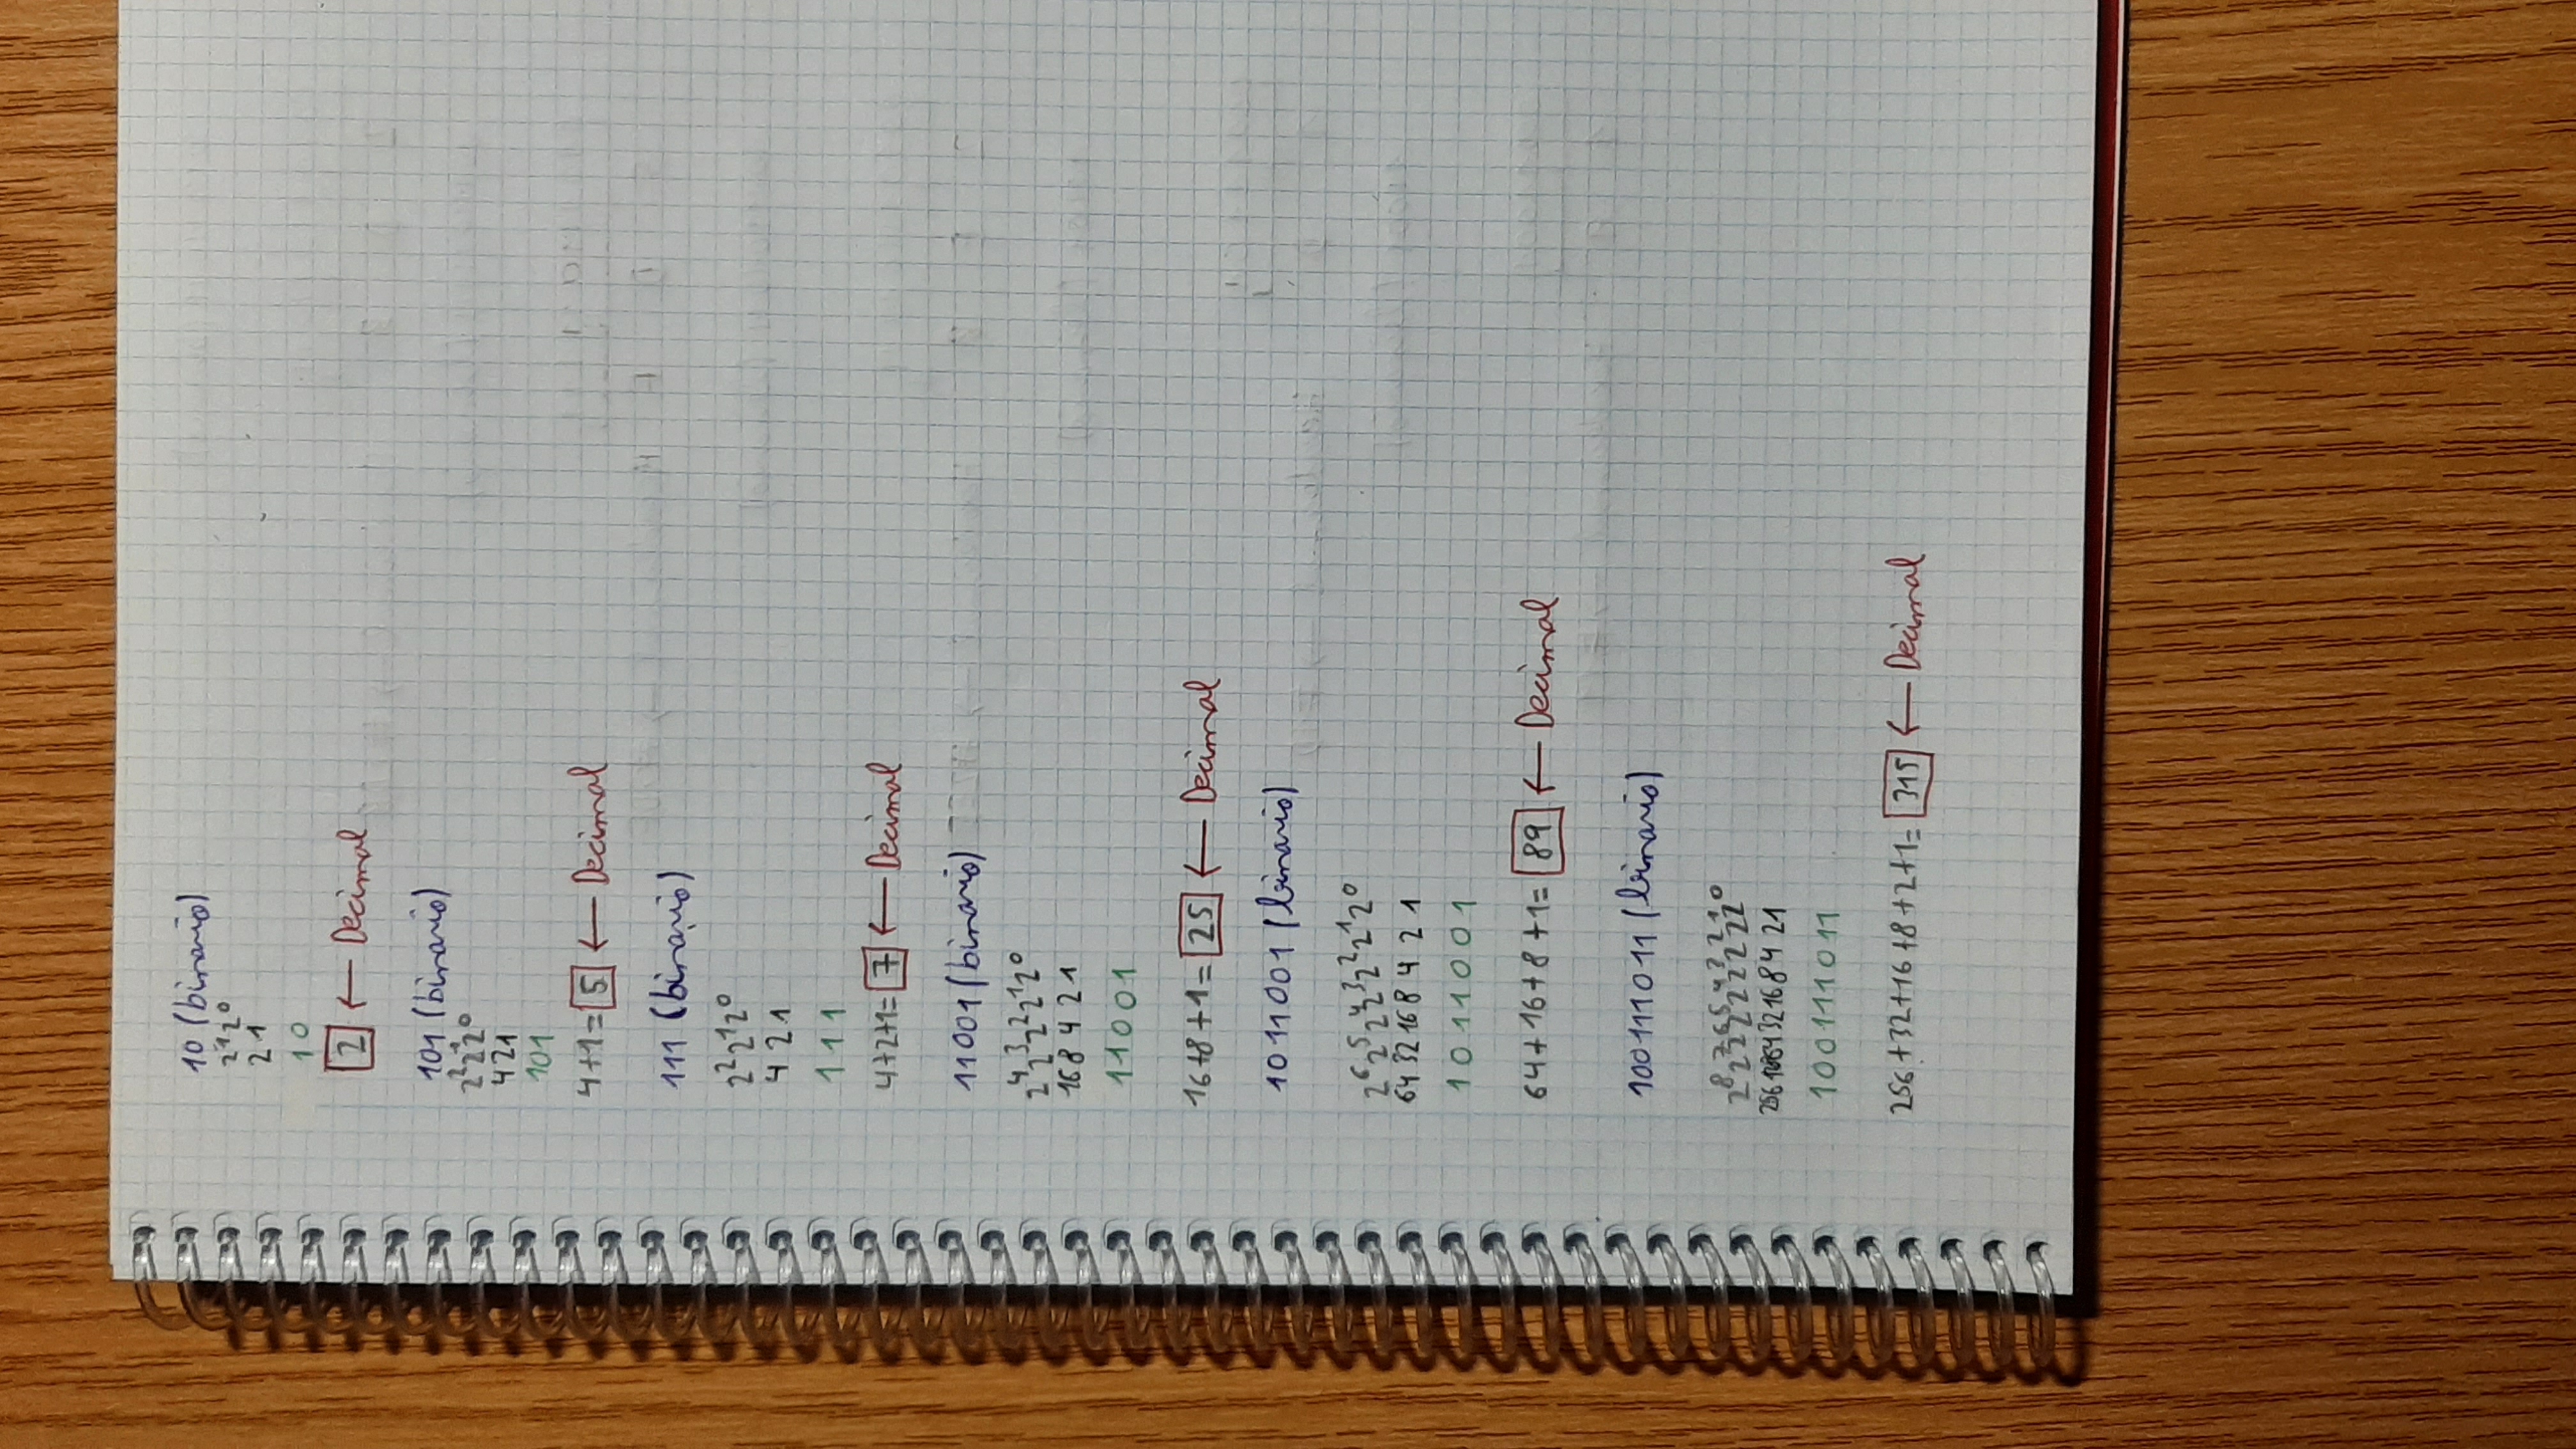 10 (binario)
2¹2⁰
21
10
2 ← Decimal
101 (binario)
2²2¹2⁰
421
101
4+1= 5 ← Decimal
111 (binario)
2²2¹2⁰
4 2 1
1 1 1
4+2+1= 7 ← Decimal
11001 (binario)
2⁴2³2²2¹2⁰
16 8 4 2 1
11001
16+8+1= 25 ← Decimal
1011001 (binario)
2⁶2⁵2⁴2³2²2¹2⁰
64 32 16 8 4 2 1
1011001
64+16+8+1= 89 ← Decimal
100111011 (binario)
2⁸2⁷2⁶2⁵2⁴2³2²2¹2⁰
256 128 64 32 16 8 4 2 1
100111011
256+32+16+8+2+1= 315 ← Decimal